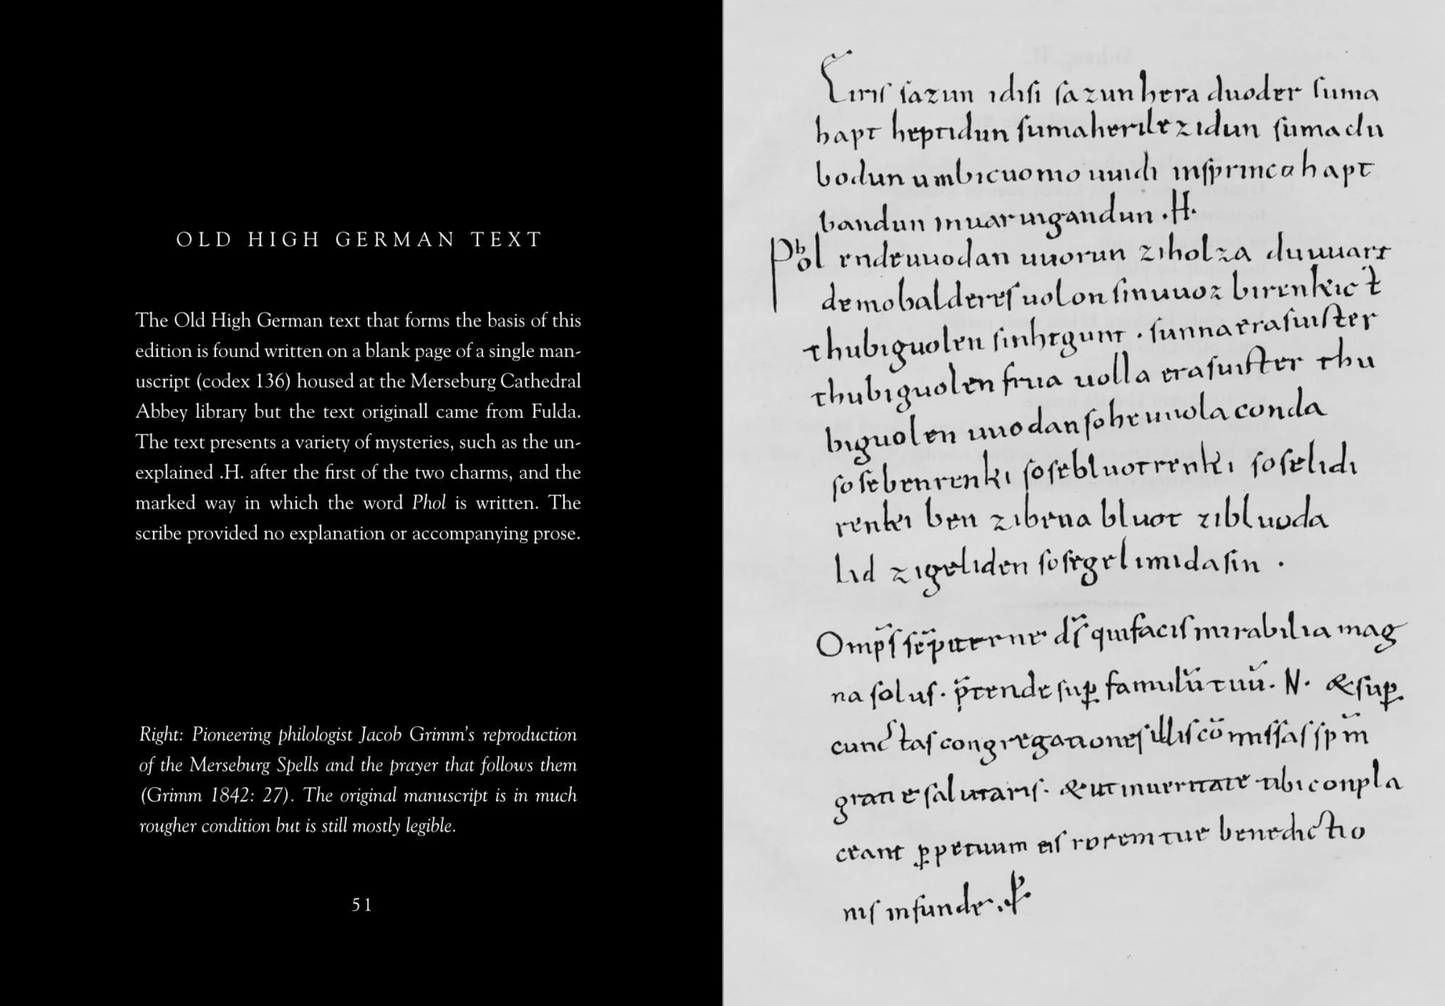 OLD HIGH GERMAN TEXT
The Old High German text that forms the basis of this
edition is found written on a blank page of a single man-
uscript (codex 136) housed at the Merseburg Cathedral
Abbey library but the text originall came from Fulda.
The text presents a variety of mysteries, such as the un-
explained .H. after the first of the two charms, and the
marked way in which the word Phol is written. The
scribe provided no explanation or accompanying prose.
Right: Pioneering philologist Jacob Grimm's reproduction
of the Merseburg Spells and the prayer that follows them
(Grimm 1842: 27). The original manuscript is in much
rougher condition but is still mostly legible.
51
Eiriſ ſazun idiſi ſazun hera duoder ſuma
hapt heptidun ſumaherilezidun ſumaclu
bodun umbicuonio uuidi inſprinca hapt
bandun inuar uigandun .H.
Phol endeuuodan uuorun ziholza du uuart
demobaldereſ uolon ſinuuoz birenkict
thubiguolen ſinhtgunt . ſunnaeraſuiſter
thubiguolen frua uolla eraſuiſter thu
biguolen uuodan ſohe uuola conda
ſoſebenrenki ſoſebluotrenki ſoſelidi
renki ben zibena bluot zibluoda
lid zigeliden ſoſegelimidaſin .
Omp̄ſ ſēpiterne d̄ſ quifaciſ mirabilia mag
na ſoluſ. p̄tende ſuꝑ famulū tuū. N. &ſuꝑ
cunctaſ congregationeſ illiſ cō miſſaſ ſpm̄
gratię ſalutariſ. &ut inueritate tibi conpla
ceant ꝑpetuum eiſ rorem tuę benedictio
niſ infunde.